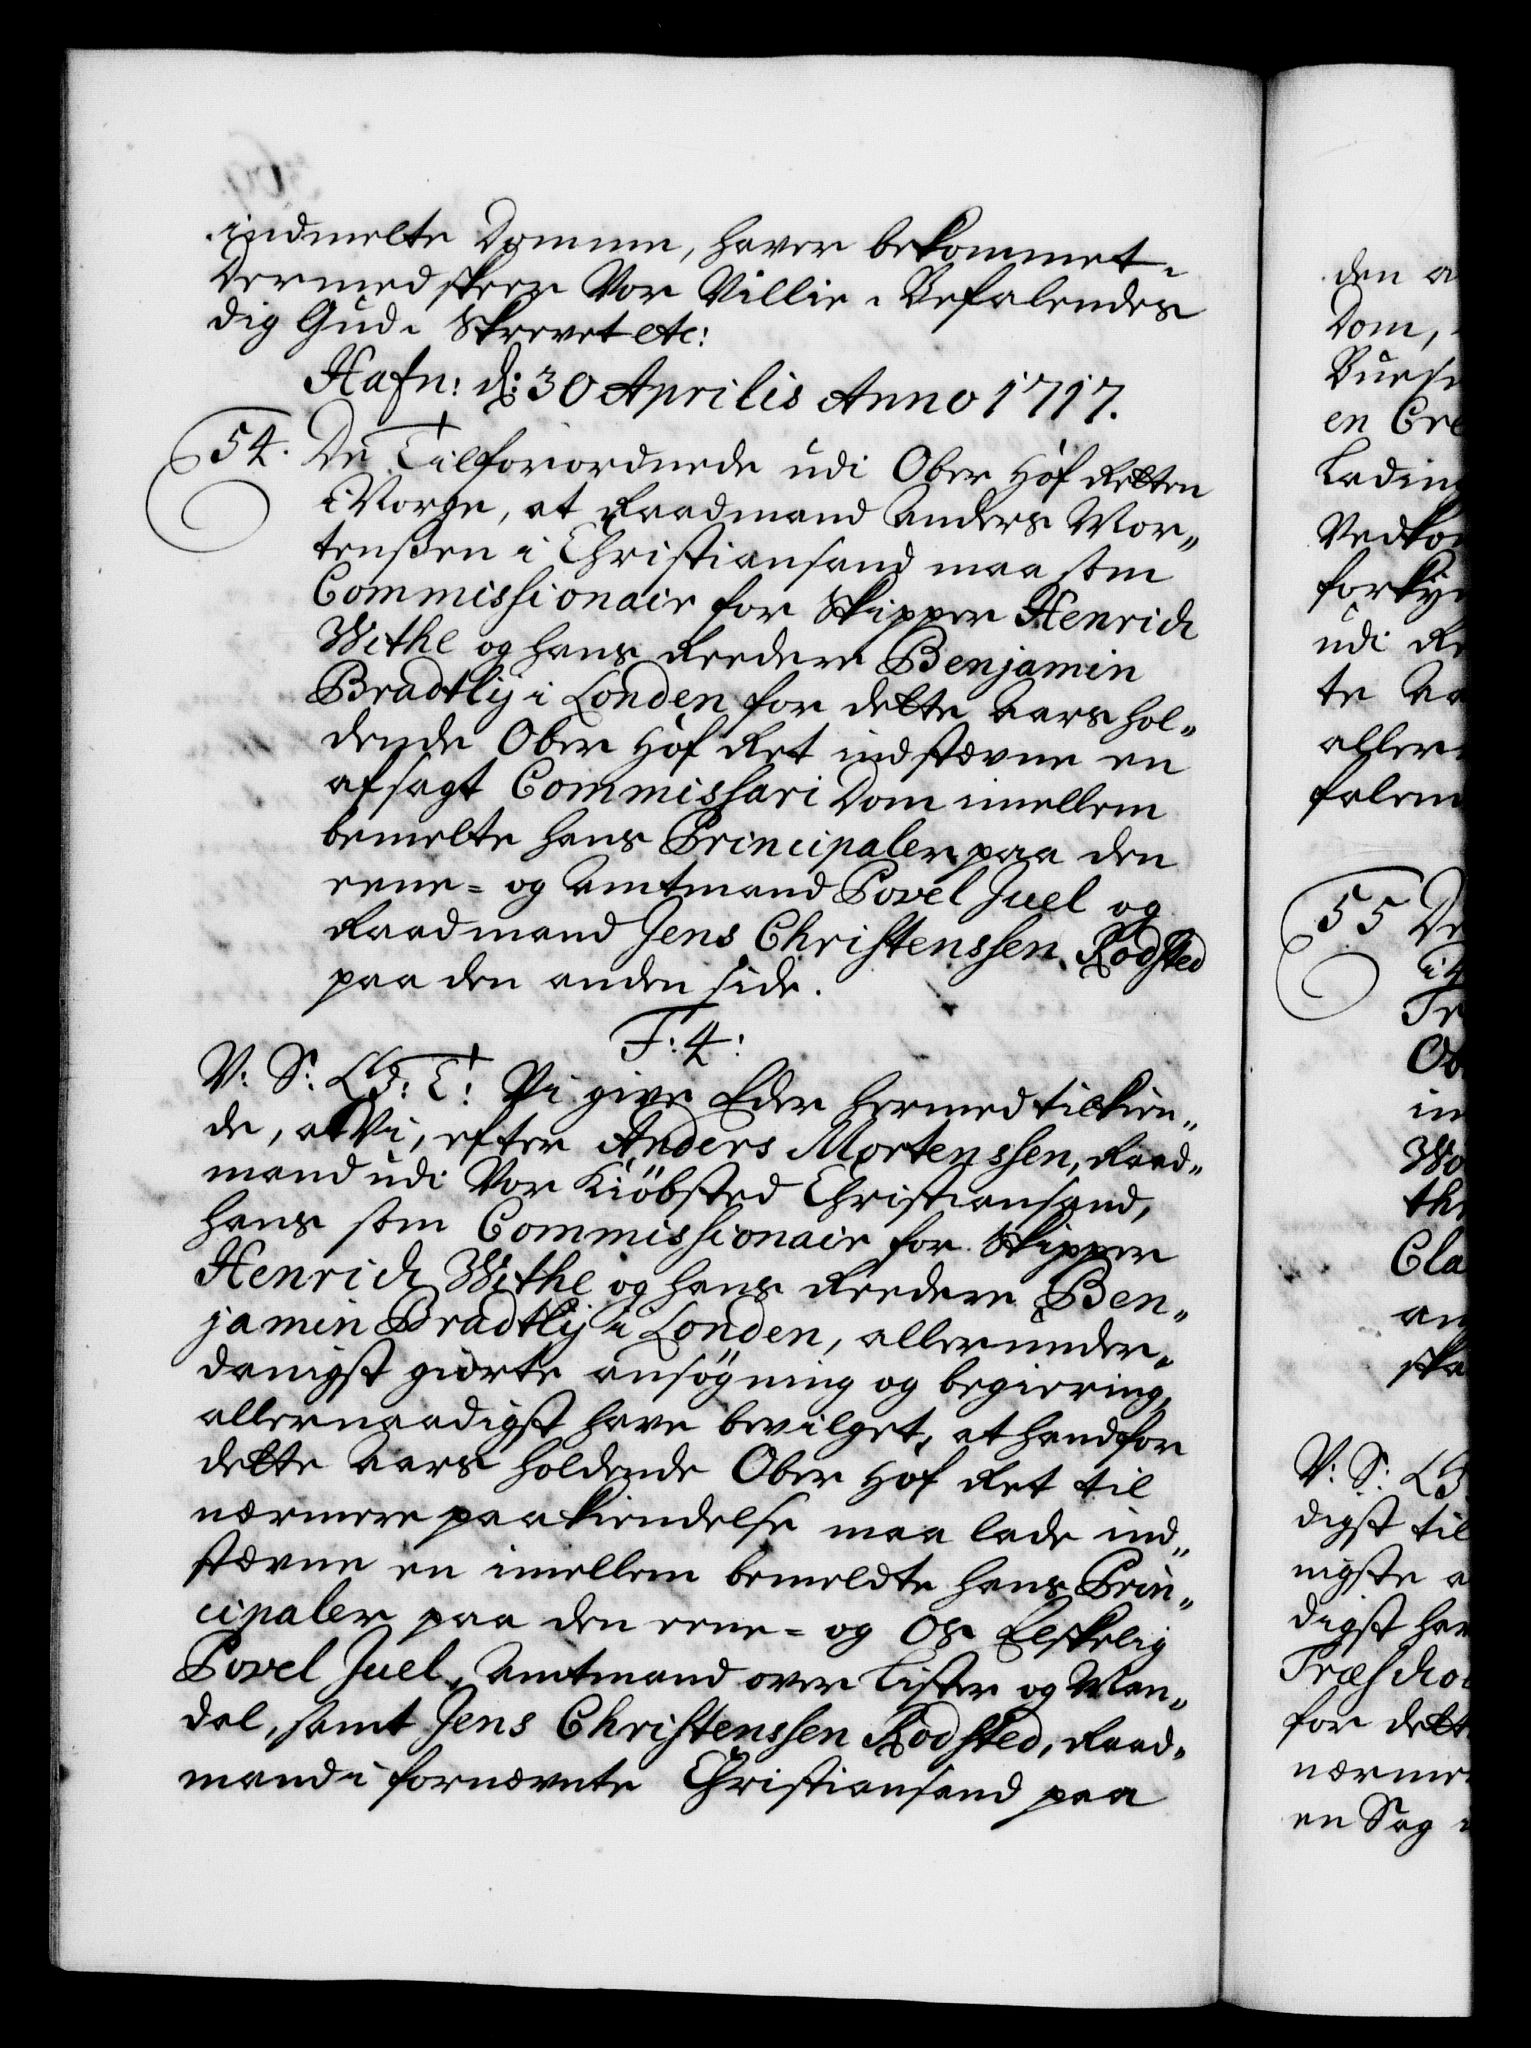 indmelte Domme, haver bekommet.
Dermed skeer Vor Villie. Befalendes
dig Gud. Skrevet etc:
Hafn: d: 30 Aprilis Anno 1717.
54. De Tilforordnede udi Ober Hof Retten
i Norge, at Raadmand Anders Mor„
tenßen i Christiansand maa som
Commissionair for Skipper Henrich
Withe og hans Reedere Benjamin
Bradtlij i Londen for dette Aars hol„
dende Ober Hof Ret indstævne en
afsagt Commissari Dom imellem
bemelte hans Principaler paa den
eene= og Amtmand Povel Juel og
Raadmand Jens Christenssen Rodsted
paa den anden side.
F: 4:
V: S: G: T: Vi give Eder hermed tilkien„
de, at Vi, efter Anders Mortenssen, Raad„
mand udi Vor Kiöbsted Christiansand,
hans som Commissionair for Skipper
Henrich Withe og hans Reedere Ben„
jamin Bradtlij i Londen, allerunder„
danigst giorte ansøgning og begiering,
allernaadigst have bevilget, at hand for
dette Aars holdende Ober Hof Ret til
nærmere paakiendelse maa lade ind„
stævne en imellem bemeldte hans Prin„
cipaler paa den eene= og Os Elskelig
Povel Juel, Amtmand over Lister og Man„
dal, samt Jens Christenssen Rodsted, Raad„
mand i fornævnte Christiansand paa
den a
Dom,
en Cre
Lading
udi Re
te Aa
aller
falen
55 De
Tr
in
Cla
ska
V: S: G
digst til
nigste a
digst hav
for dett
nærmer
en Sag